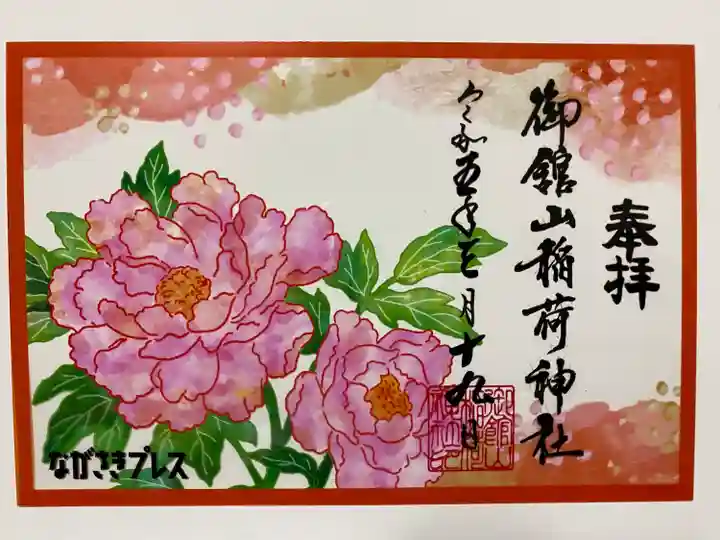 奉拝
御館山稲荷神社
令和五年三月十九日
ながさきプレス